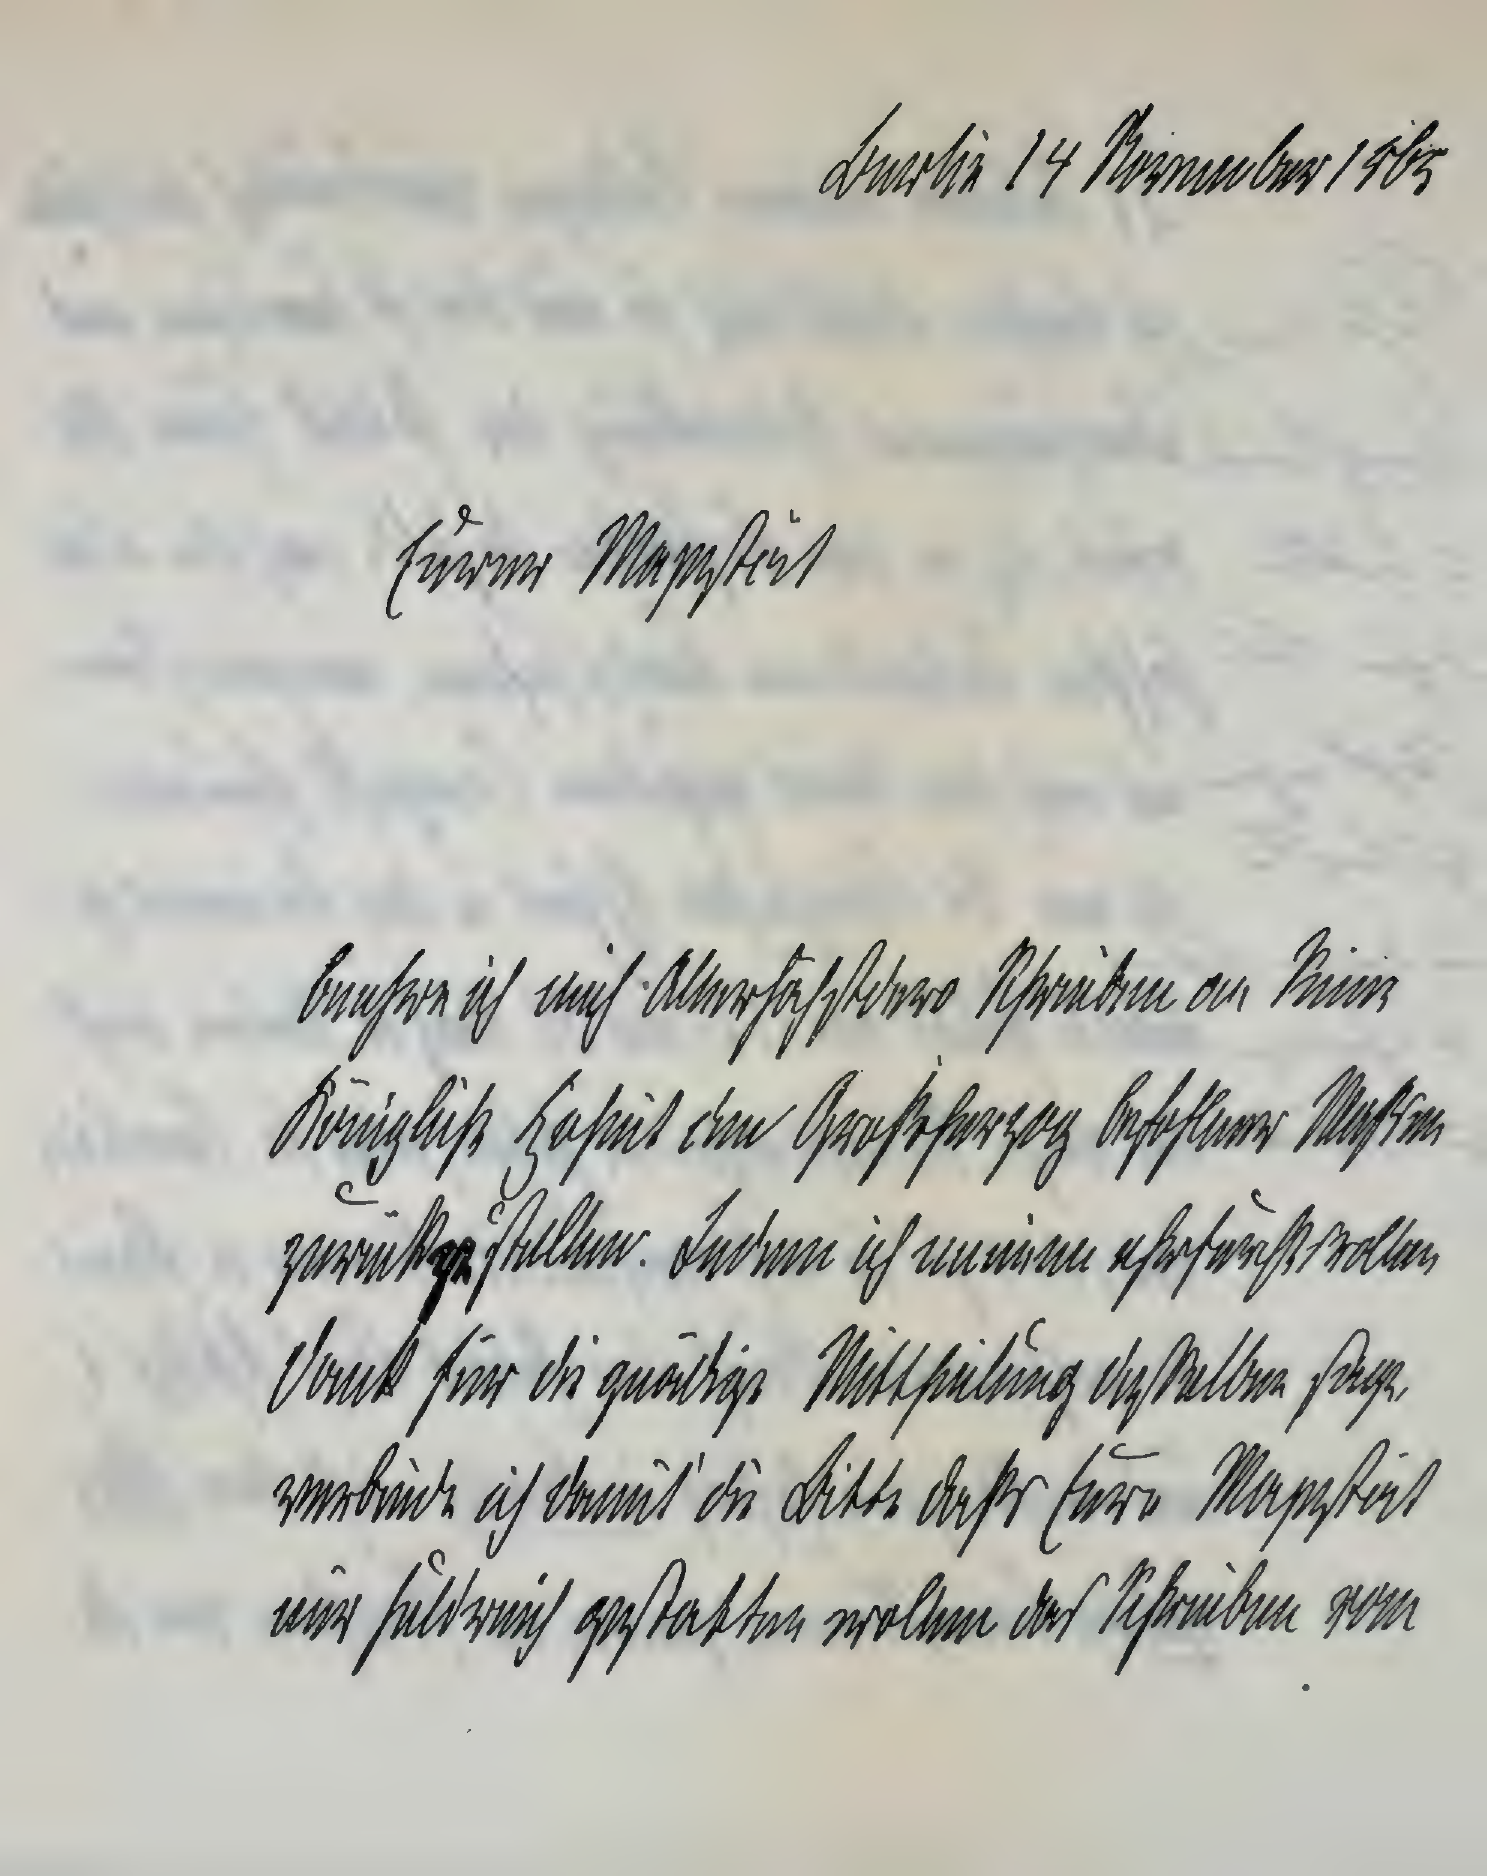 Berlin 14 November 1865
Euerer Majestät
beehre ich mich Allerhöchstdero Schreiben an Seine
Königliche Hoheit den Großherzog befohlener Maßen
zurückzustellen. Indem ich meinen ehrfurchtsvollen
Dank für die gnädige Mittheilung desselben sage,
verbinde ich damit die Bitte daß Eure Majestät
mir huldreich gestatten wollen das Schreiben vom